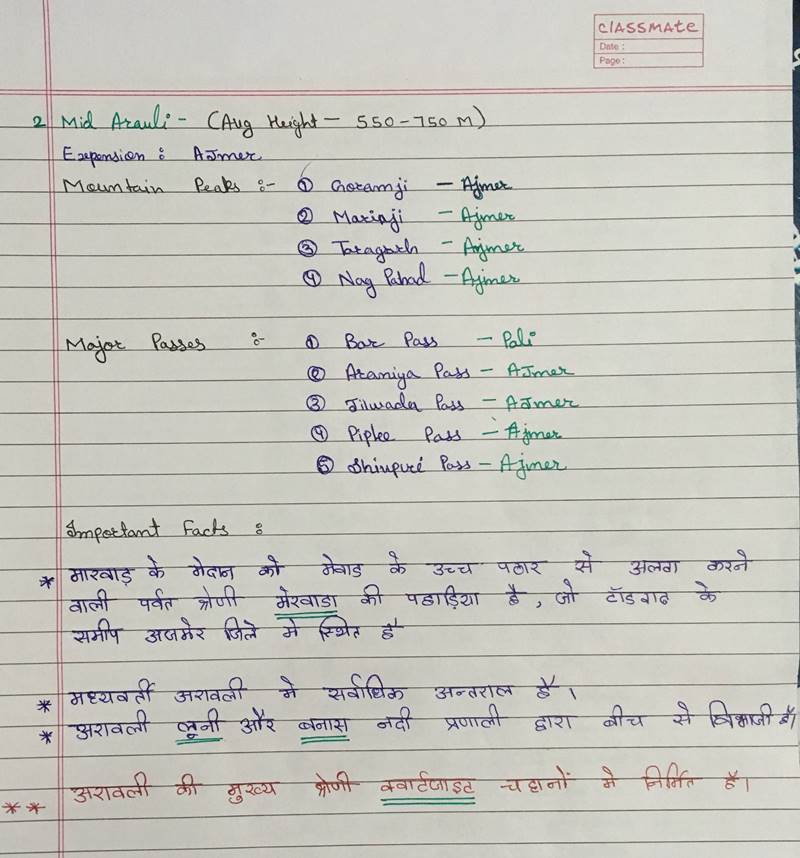 CLASSMATE
Date :
Page :
2 Mid Arauli - (Avg Height - 550-750 M)
Expension : AJmer
Mountain Peaks :- ① Goramji - Ajmer
② Mariaji - Ajmer
③ Taragarh - Ajmer
④ Nag Pahad - Ajmer
Major Passes :- ① Bar Pass - Pali
② Araniya Pass - AJmer
③ Jilwada Pass - AJmer
④ Piplee Pass - Ajmer
⑤ Shivpuri Pass - Ajmer
Important Facts :
* मारवाड़ के मेदान को मेवाड के उच्च पठार से अलग करने
वाली पर्वत श्रेणी मेरवाडा की पहाड़िया है, जो टॉडगढ के
समीप अजमेर जिले मे स्थित है
* मध्यवर्ती अरावली मे सर्वाधिक अन्तराल है।
* अरावली लूनी और बनास नदी प्रणाली द्वारा बीच से विभाजी है।
** अरावली की मुख्य श्रेणी क्वार्टजाइट चट्टानों मे निर्मित है।